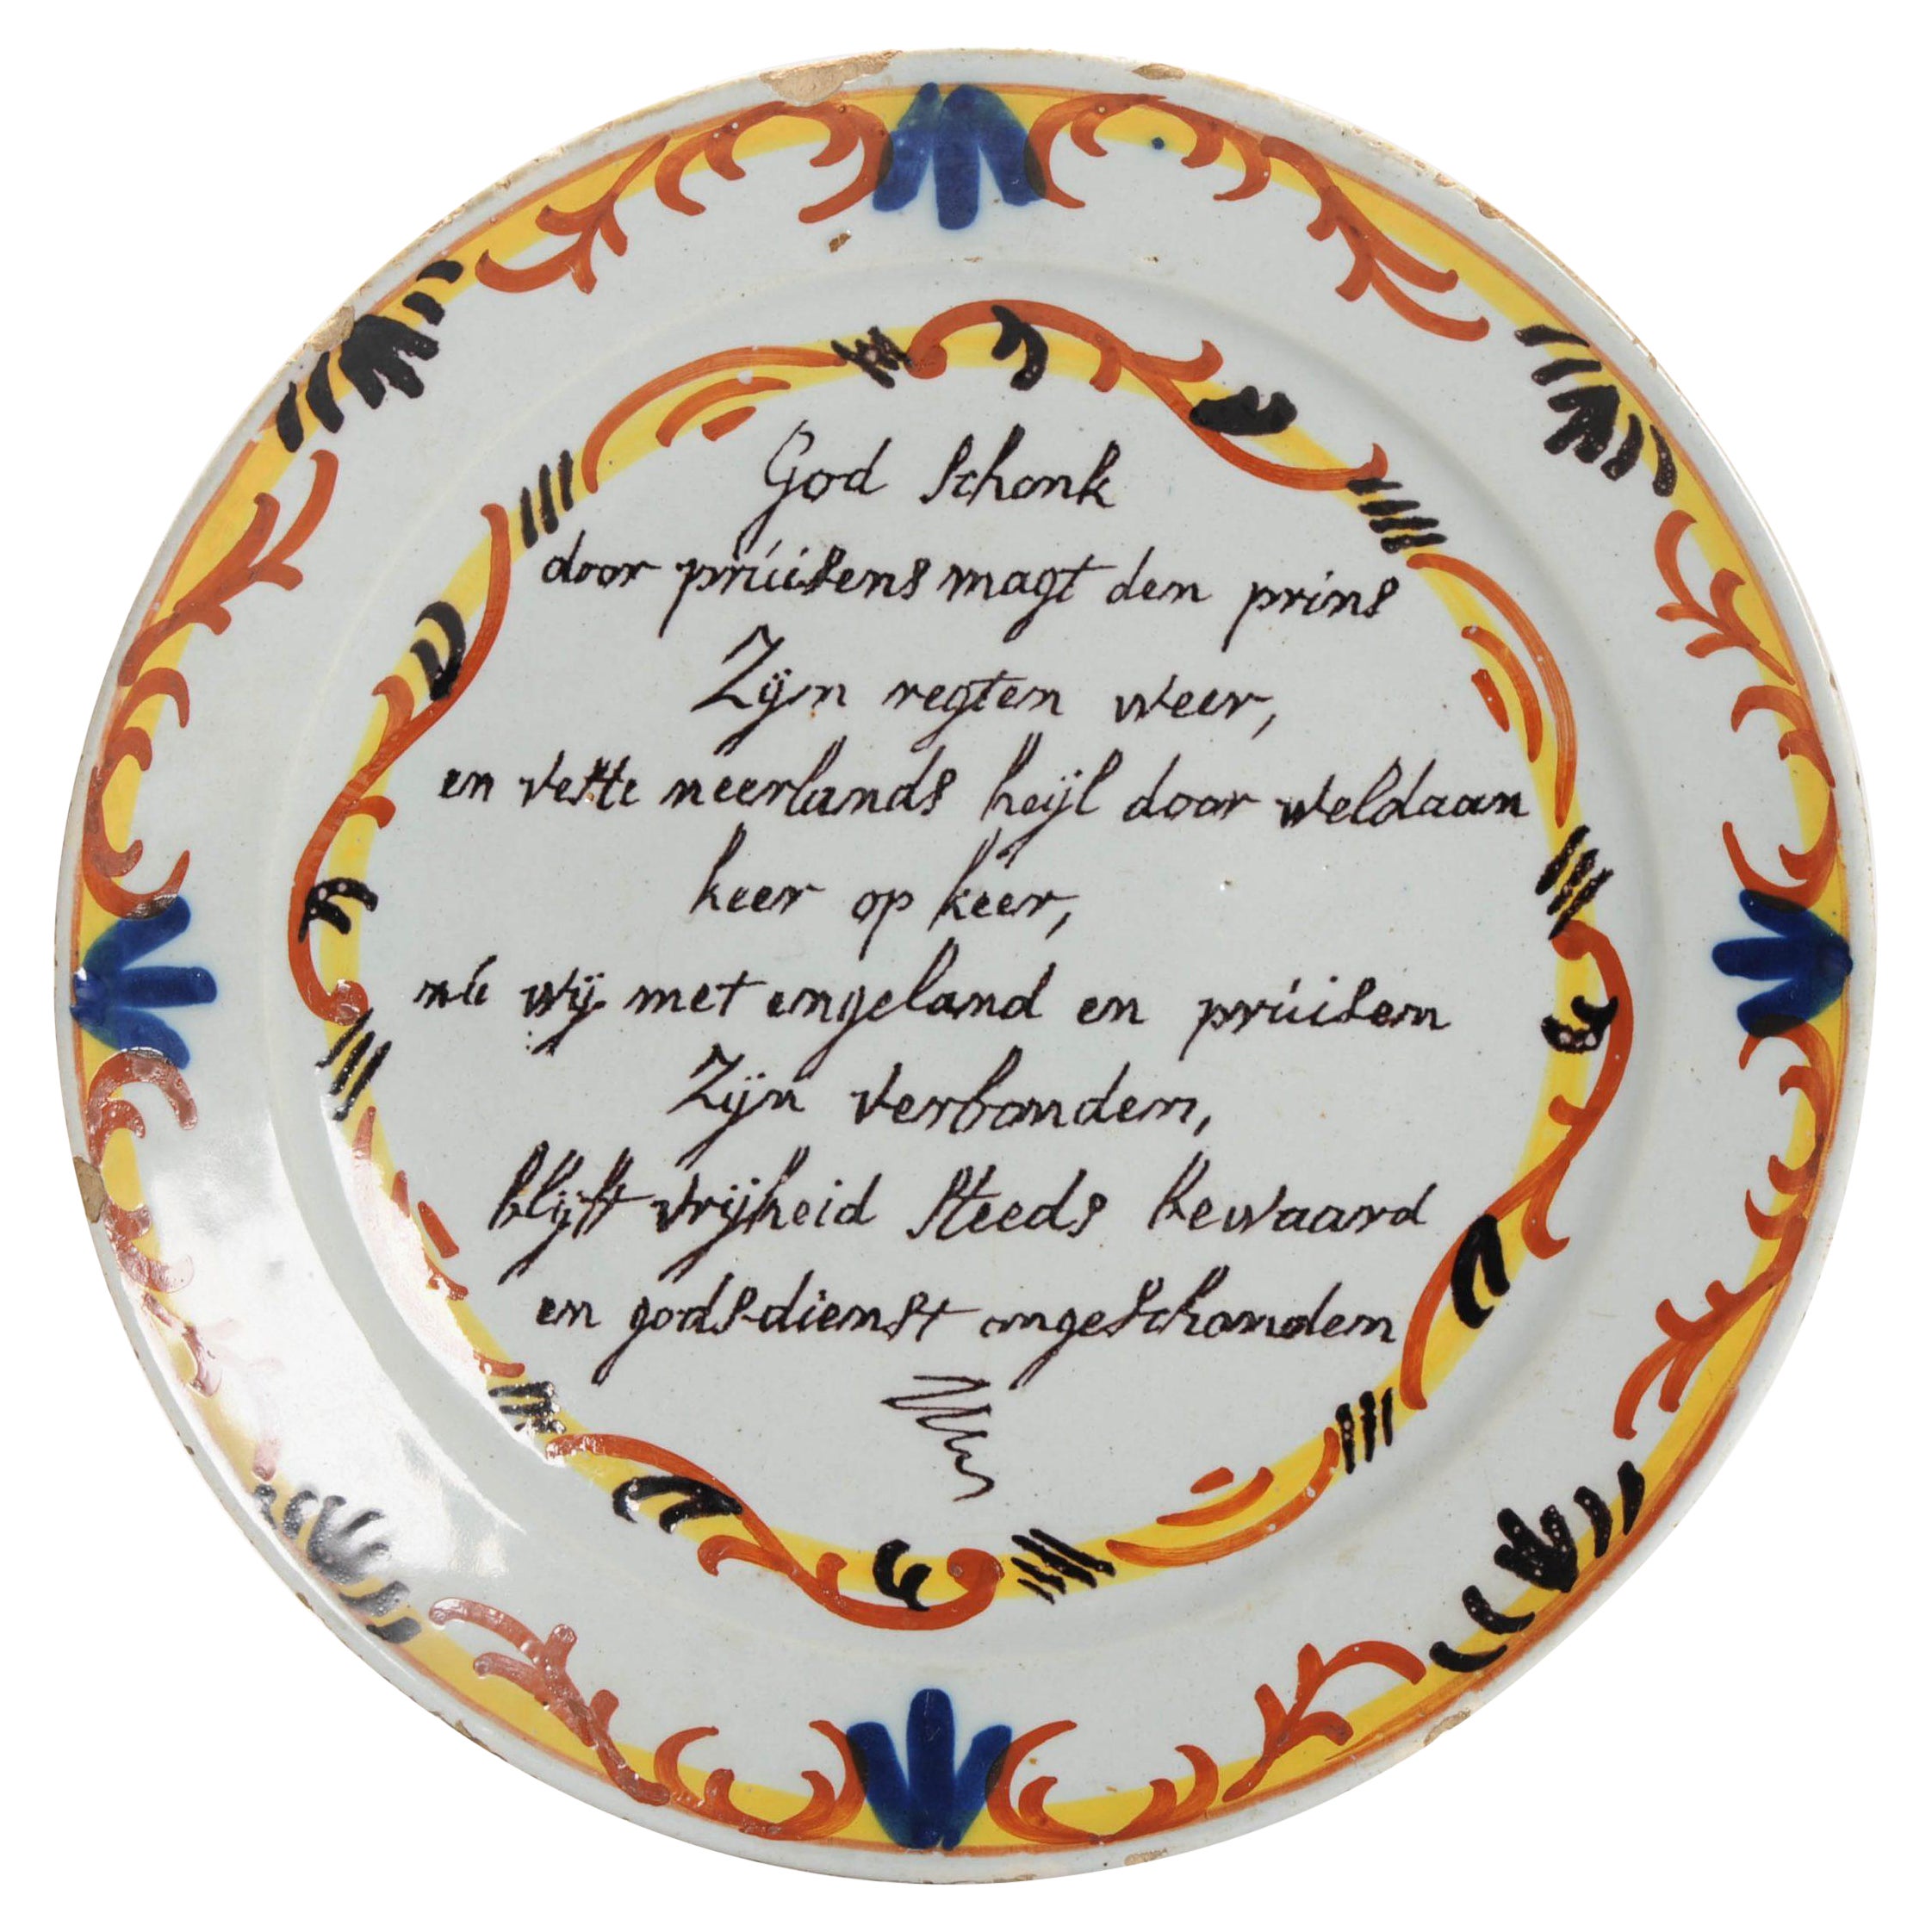 God schonk
door prúisens magt den prins
Zijn regten weer,
en veste neerlands heijl door weldaan
keer op keer,
nú wij met engeland en prúisen
Zijn verbonden,
blijft vrijheid steeds bewaard
en godsdienst ongeschonden